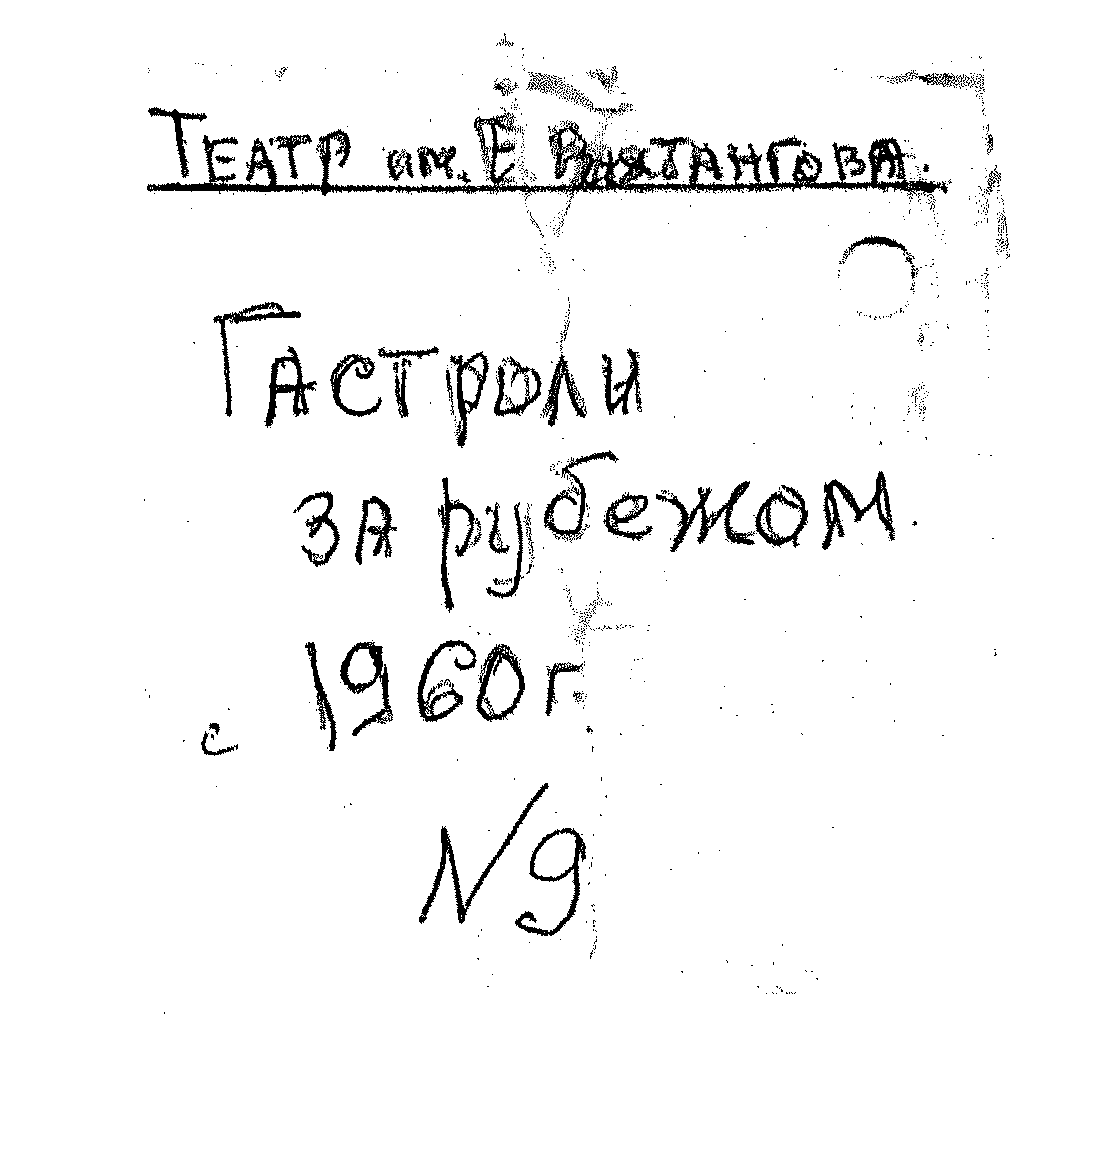 Театр им. Е Вахтангова.
Гастроли
за рубежом.
с 1960 г
N 9